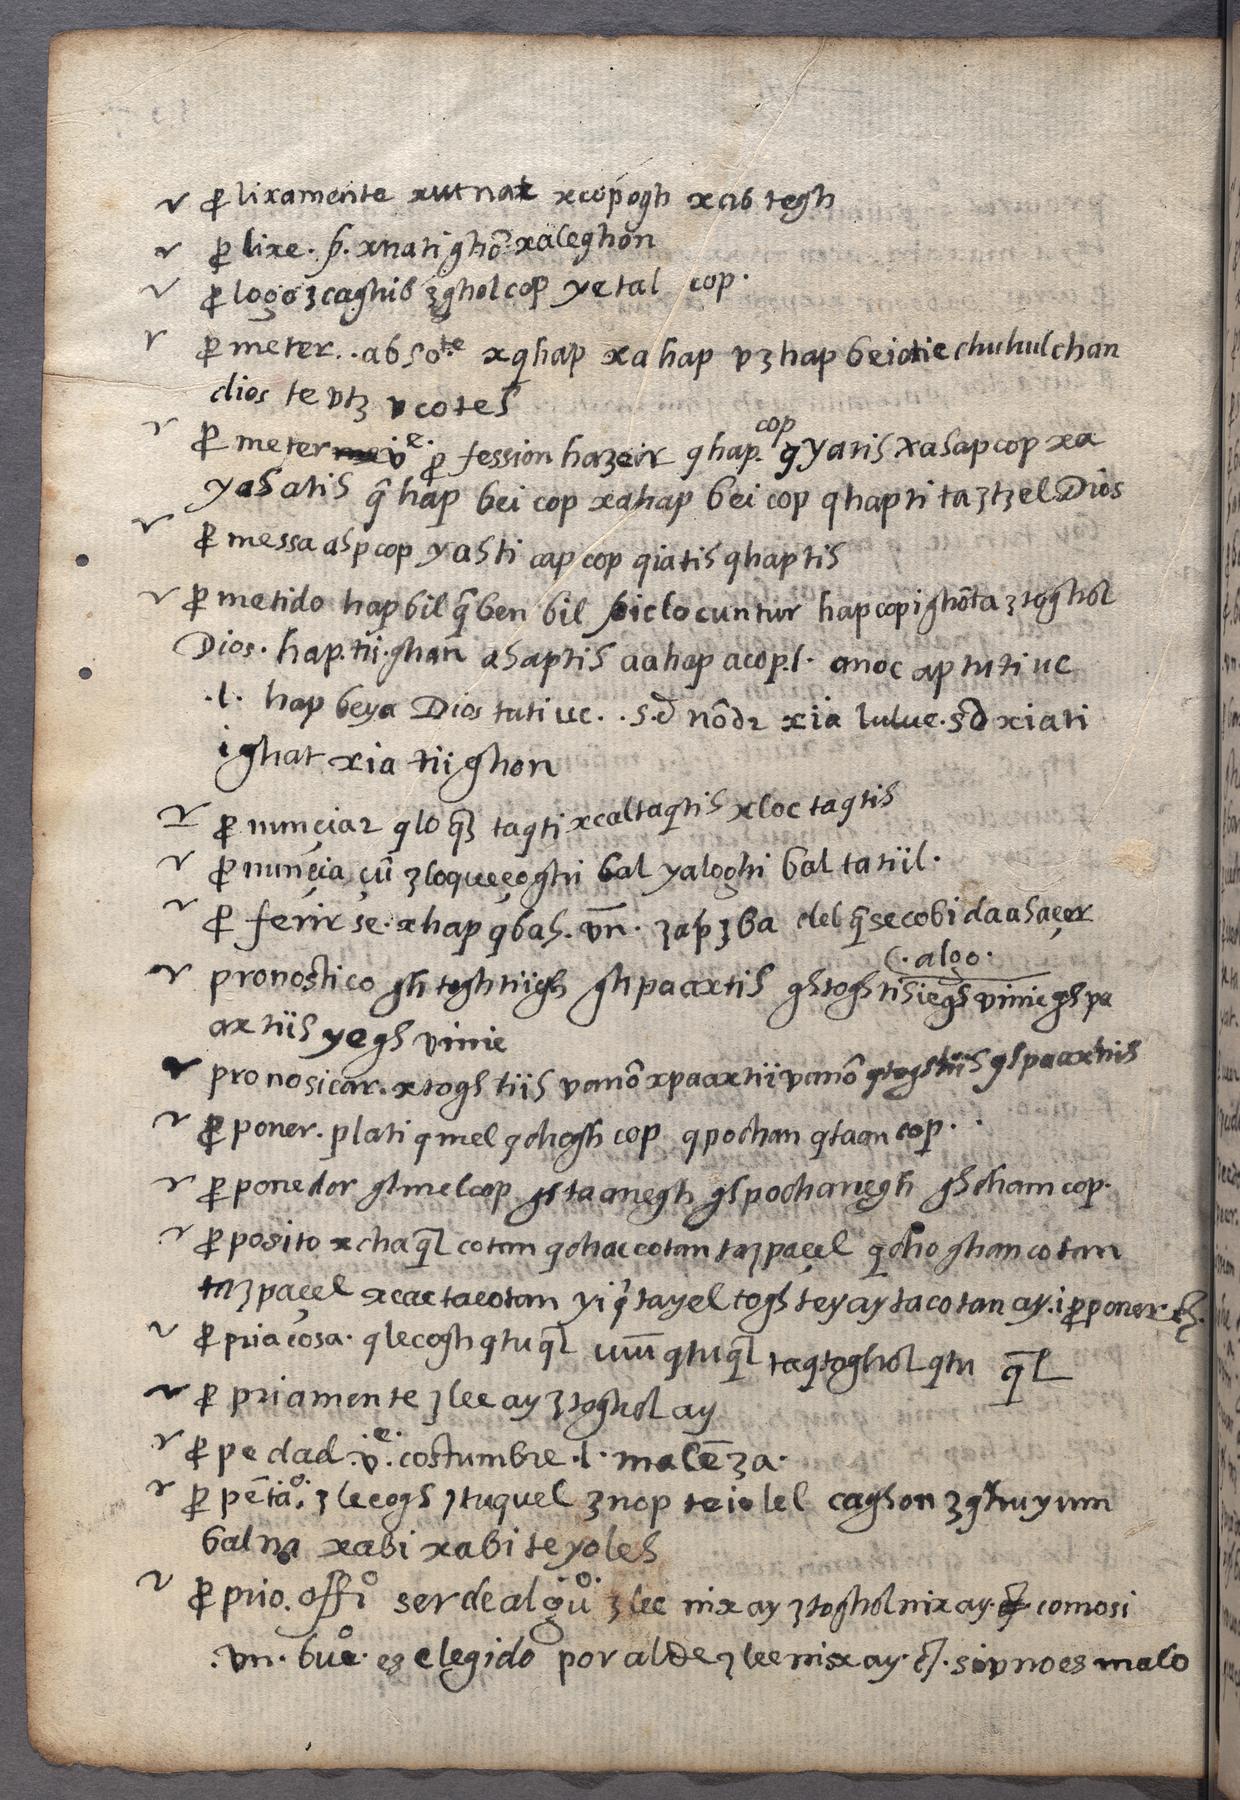 ꝓ lixamente xutnat xcopogh xcab tegh
ꝓ lixe. xnatighõ xaleghon
ꝓ logo ȝcaghib ȝghol cop yetal cop.
ꝓ meter. absote xqhap xa hap vȝhap beiotie chuhulchan
dios te vtȝ vcoteS
ꝓ meter ve. ꝓ fession hazeir qhap. cop qyatiS xaSapcop xa
yaSatiS q̃ hap bei cop xahap bei cop qhapti taȝtȝel Dios
ꝓ messa aSpcop yaSti cap cop qiatiS qhaptiS
ꝓ metido hapbil q̃ben bil sic locuntur hapcop ighõta ȝtoghol
Dios. hap. tii. ghan aSaptiS aahap acop. l. anoc ap tutiuc
.l. hap beya Dios tutiuc. .s.d nõdr xia luluc. sd xiati
ighat xia tiighon
ꝓ nunçiar qlo taqti xcaltaqtiS xloc taqtiS
ꝓ nunçia çũ ȝloqueçoghi bal yaloghi bal tatiil.
ꝓ ferir se. xhap qbaS. vn. ȝap ȝba del q̃ se cobidaaSaçer
pronostico gh toghtiigh ghpaaxtiS gStogS tiS iegS vinic gS pa
(. algo.
axtiiS yegS vinic
pronosicar. xtogS tiiS vanõ xpaaxtii vanõ gtogStiiS gSpaaxtiiS
ꝓ poner. plati qmel qchogh cop qpochan qtaan cop.
ꝓ ponedor ghmelcop gS taanegh gSpochanegh gScham cop.
ꝓ posito xchaq̃l cotan qchaccotan taȝpaçel qcho ghancotan
taȝpaçel xcac tacotan yiq tayel togS teyaytacotan ay. i ꝓponer
ꝓ pria cosa. qlecogh qtuq̃l qtuq̃l taqtoghol qtu q̃l
ꝓ priamente ȝlee ay ȝtoghol ay
ꝓ pedad .ve. costumbre .l. malẽȝa.
ꝓ pẽtão. ȝleeogS ȝtuquel ȝnop teiolel cagSon ȝghuyum
balna xabi xabi teyoleS
ꝓ prio. offio ser de algũo ȝlee nix ay ȝtoghol nix ay. comosi
.vn. buo. es elegido por alde ȝlee nix ay. si vno es malo